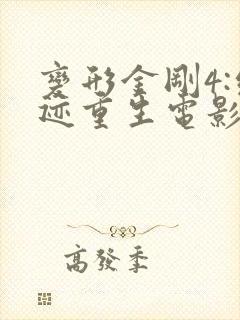 變形金剛4:
迹重生電影
高發季